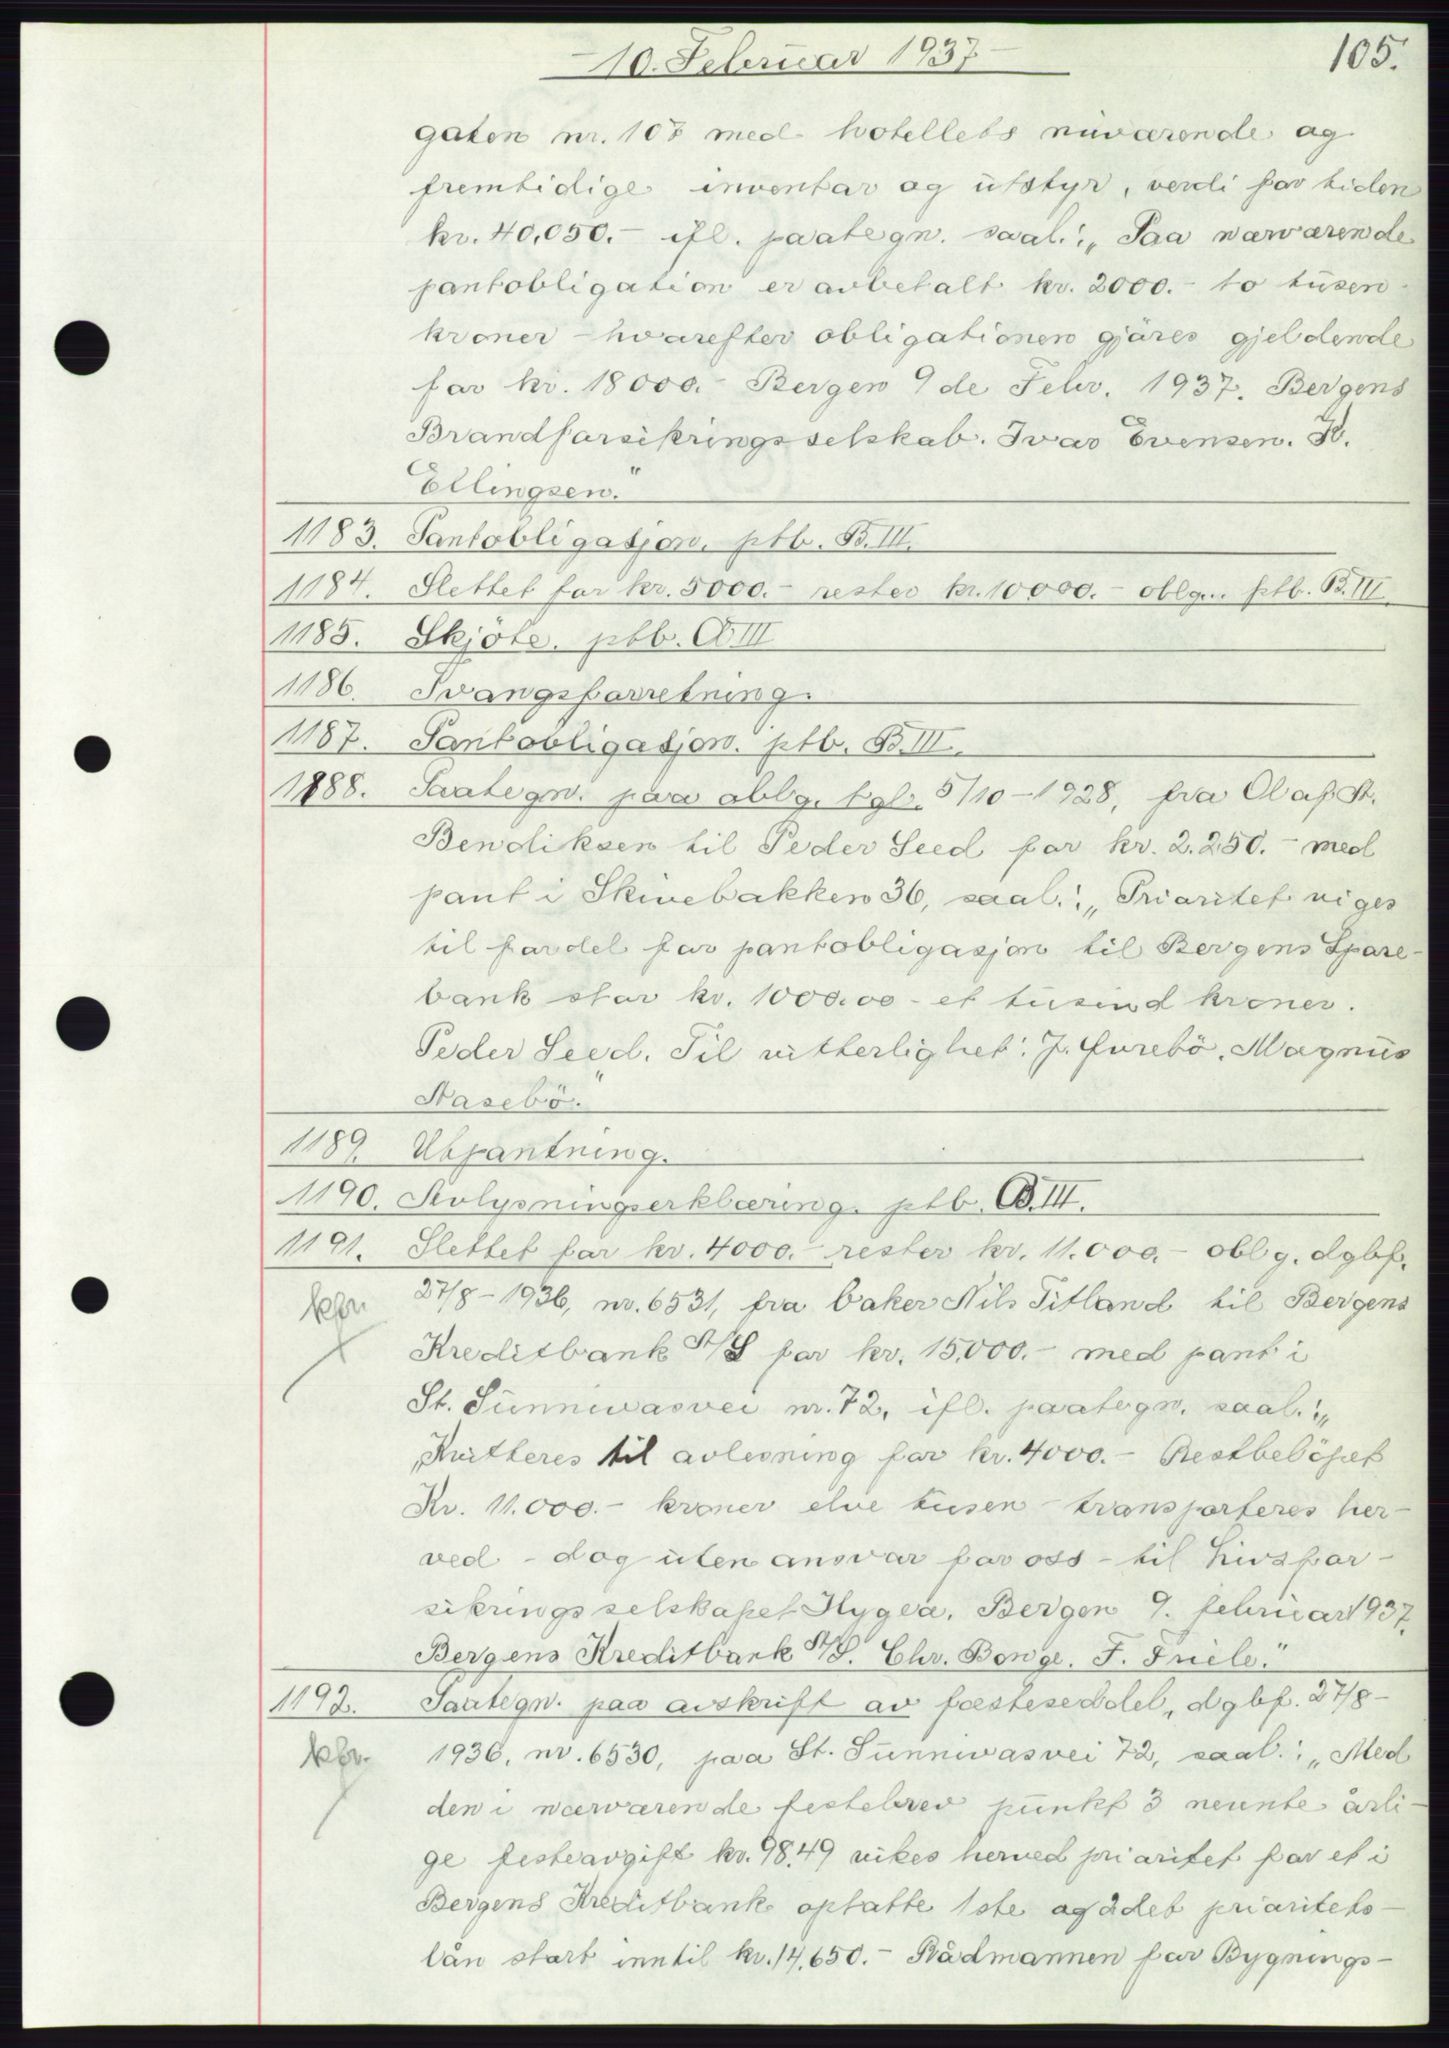 -10. Februar 1937-
105.
gaten nr. 107 med hotellets nuværende og
fremtidige inventar og utstyr, verdi for tiden
kr. 40,050.- ifl. paategn. saal.: „Paa nærværende
pantobligation er avbetalt kr. 2000.- to tusen
kroner - hvorefter obligationen gjøres gjeldende
for kr. 18000.- Bergen 9de Febr. 1937. Bergens
Brandforsikringsselskab. Ivar Evensen. K.
Ellingsen."
1183. Pantobligasjon. ptb. B.III.
1184. Slettet for kr. 5000.- rester kr. 10000.- oblg.. ptb. B.III.
1185. Skjöte. ptb. A III
1186. Tvangsforretning.
1187. Pantobligasjon. ptb. B.III.
1188. Paategn. paa oblg. tgl. 5/10-1928, fra Olaf St.
Bendiksen til Peder Seed for kr. 2.250.- med
pant i Skivebakken 36, saal.: „Prioritet viges
til fordel for pantobligasjon til Bergens Spare-
bank stor kr. 1000.00 - et tusind kroner.
Peder Seed. Til vitterlighet: J. Furebö. Magnus
Nasebö."
1189. Utpantning.
1190. Avlysningserklæring. ptb. B.III.
1191. Slettet for kr. 4000.- rester kr. 11.000.- oblg. dgbf.
27/8-1936, nr. 6531, fra baker Nils Titland til Bergens
kfr.
Kreditbank A/S for kr. 15.000.- med pant i
St. Sunnivasvei nr. 72, ifl. paategn. saal.: „
„Kvitteres til avlesning for kr. 4000.- Restbelöpet
Kr. 11.000.- kroner elve tusen - transporteres her-
ved - dog uten ansvar for oss - til Livsfor-
sikringsselskapet Hygea. Bergen 9. februar 1937.
Bergens Kreditbank A/S. Chr. Bonge. F. Friele."
1192. Paategn. paa avskrift av fæsteseddel, dgbf. 27/8-
kfr. 1936, nr. 6530, paa St. Sunnivasvei 72, saal.: „Med
den i nærværende festebrev punkt 3 nevnte årli-
ge festeavgift kr. 98.49 vikes herved prioritet for et i
Bergens Kreditbank optatte 1ste og 2det prioritets-
lån stort inntil kr. 14.650.- Rådmannen for Bygnings-